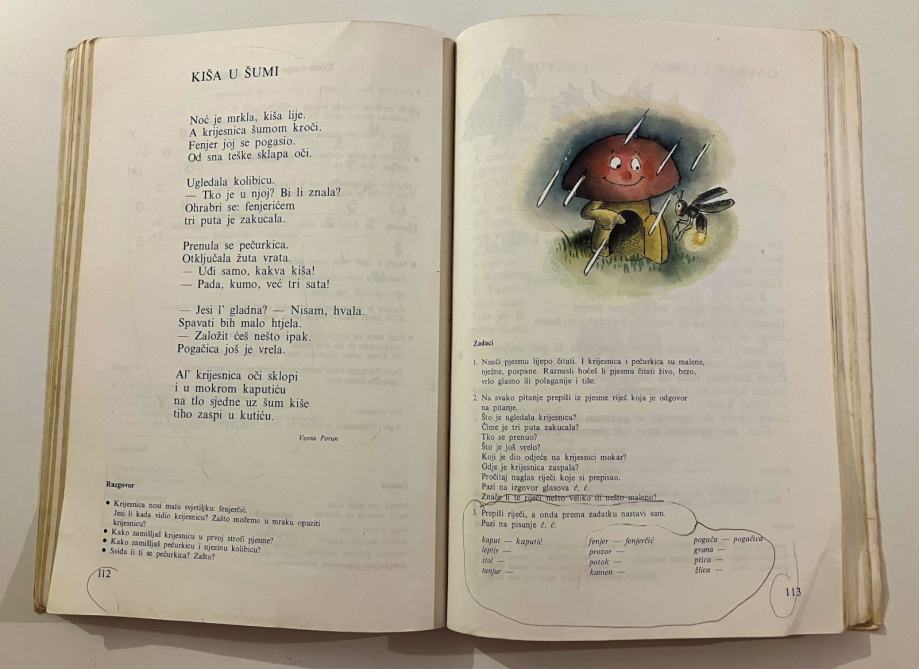 KIŠA U ŠUMI
Noć je mrkla, kiša lije.
A krijesnica šumom kroči.
Fenjer joj se pogasio.
Od sna teške sklapa oči.
Ugledala kolibicu.
— Tko je u njoj? Bi li znala?
Ohrabri se: fenjerićem
tri puta je zakucala.
Prenula se pečurkica.
Otključala žuta vrata.
— Uđi samo, kakva kiša!
— Pada, kumo, već tri sata!
— Jesi l' gladna? — Nisam, hvala.
Spavati bih malo htjela.
— Založit ćeš nešto ipak.
Pogačica još je vrela.
Al' krijesnica oči sklopi
i u mokrom kaputiću
na tlo sjedne uz šum kiše
tiho zaspi u kutiću.
Vesna Parun
Razgovor
• Krijesnica nosi malu svjetiljku: fenjerčić.
Jesi li kada vidio krijesnicu? Zašto možemo u mraku opaziti
krijesnicu?
• Kako zamišljaš krijesnicu u prvoj strofi pjesme?
• Kako zamišljaš pečurkicu i njezinu kolibicu?
• Sviđa li ti se pečurkica? Zašto?
112
Zadaci
1. Nauči pjesmu lijepo čitati. I krijesnica i pečurkica su malene,
nježne, pospane. Razmisli hoćeš li pjesmu čitati živo, brzo,
vrlo glasno ili polaganije i tiše.
2. Na svako pitanje prepiši iz pjesme riječ koja je odgovor
na pitanje.
Što je ugledala krijesnica?
Čime je tri puta zakucala?
Tko se prenuo?
Što je još vrelo?
Koji je dio odjeće na krijesnici mokar?
Gdje je krijesnica zaspala?
Pročitaj naglas riječi koje si prepisao.
Pazi na izgovor glasova č, ć.
Znače li te riječi nešto veliko ili nešto maleno?
3. Prepiši riječi, a onda prema zadatku nastavi sam.
Pazi na pisanje č, ć.
kaput — kaputić fenjer — fenjerčić pogača — pogačica
leptir — prozor — grana —
stol — potok — ptica —
tanjur — kamen — žlica —
113